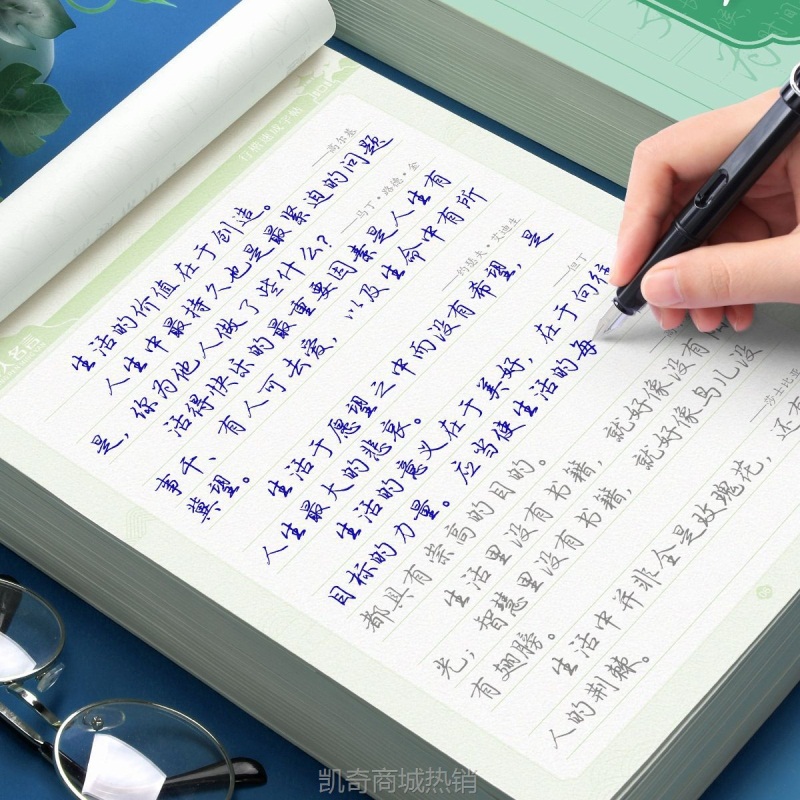 行楷速成字帖
人名言
生活的价值在于创造。
——高尔基
人生中最持久也是最紧迫的问题
是，你为他人做了些什么？
——马丁·路德·金
活得快乐的最重要因素是人生有
事干、有人可去爱，以及生命中有所
冀望。
——约瑟夫·艾迪生
生活于愿望之中而没有希望，是
人生最大的悲哀。
——但丁
生活的意义在于美好，在于向往
目标的力量。应当使生活的每
都具有崇高的目的。
生活里没有书籍，就好像没有阳
光；智慧里没有书籍，就好像鸟儿没
有翅膀。
——莎士比亚
生活中并非全是玫瑰花，还有
人的荆棘。
凯奇商城热销